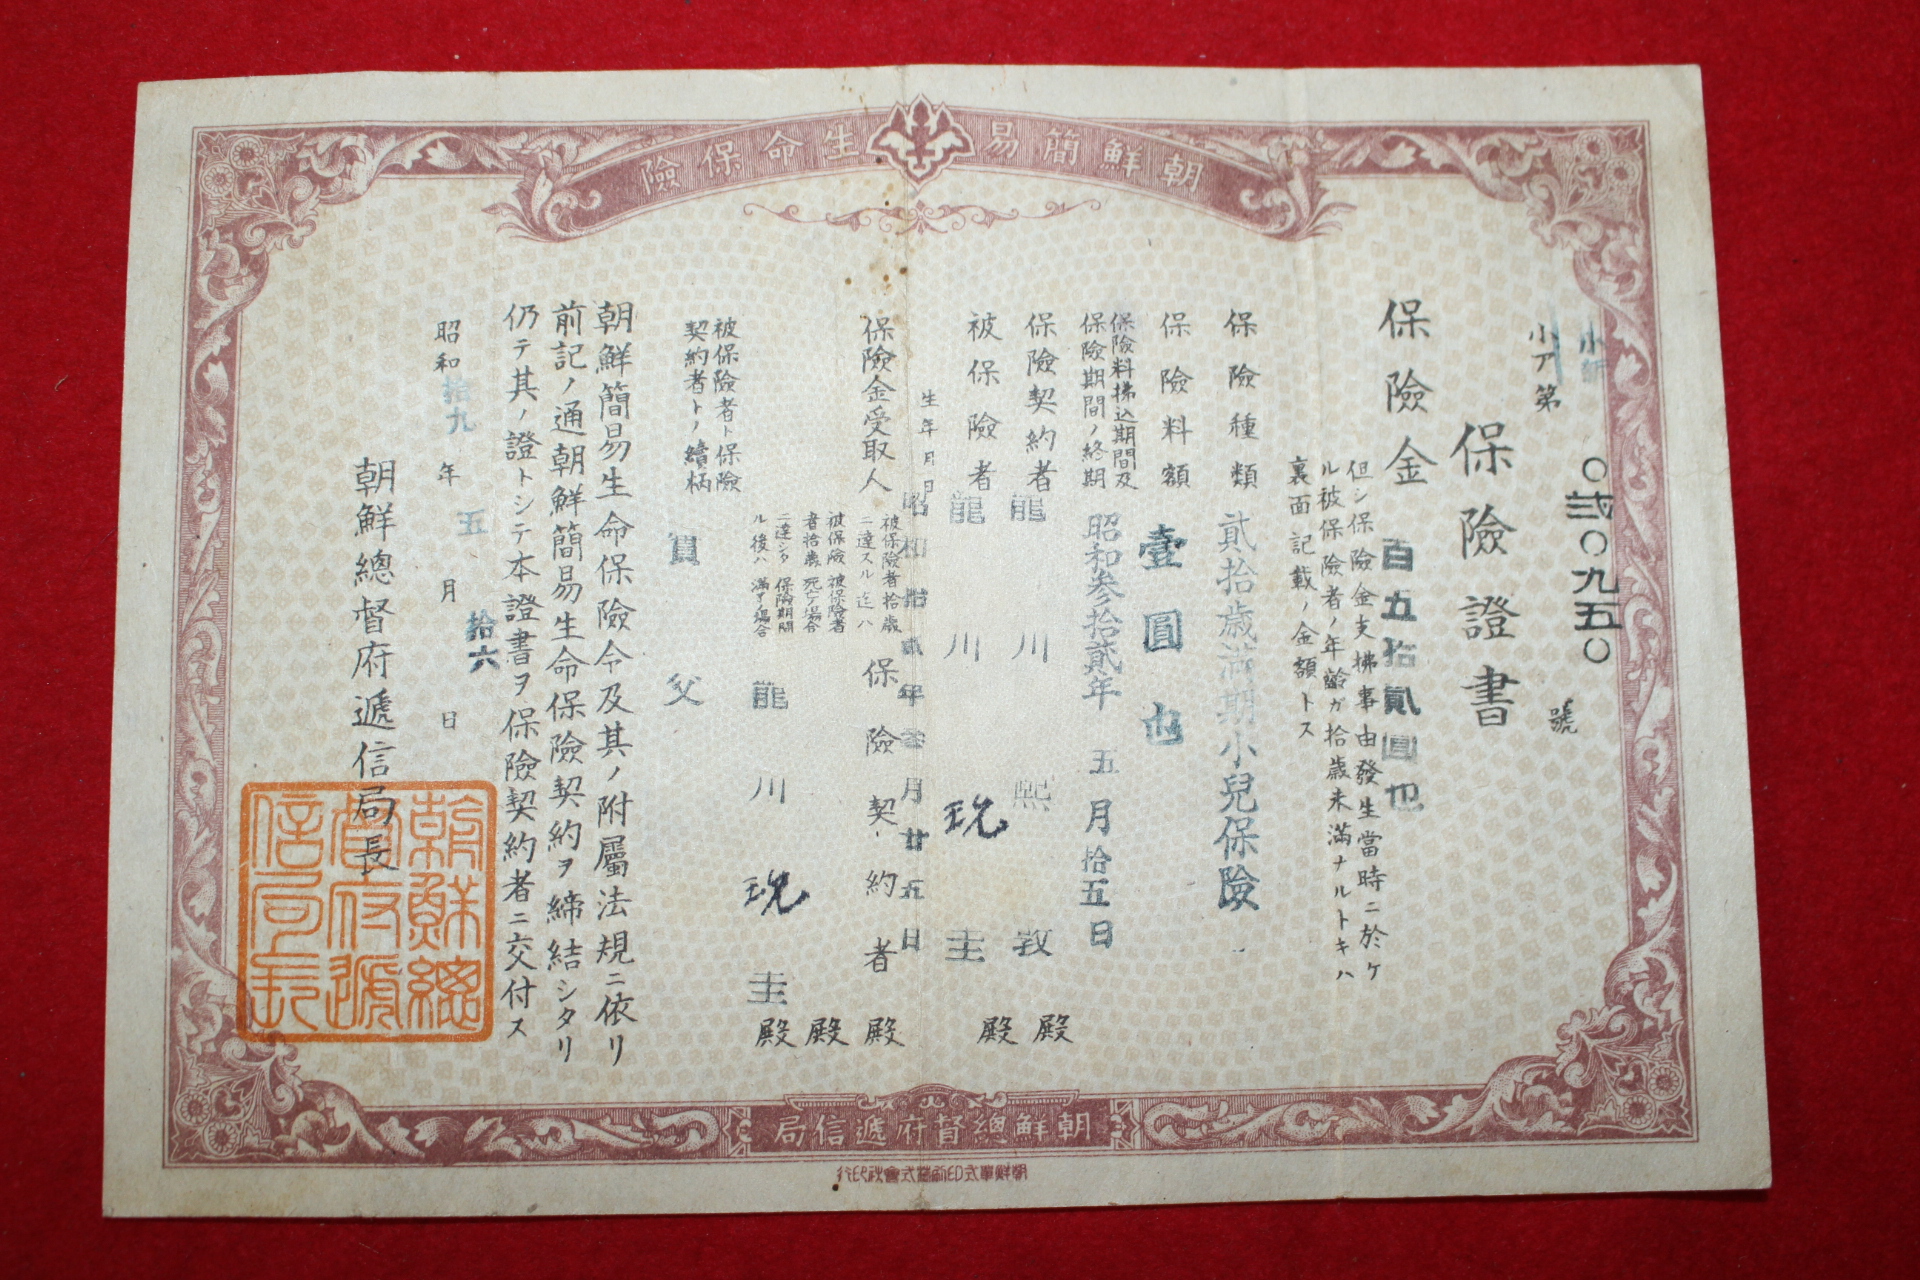 朝鮮簡易生命保險
小ア第
〇貳〇九五〇
號
保險證書
保險金 百五拾貳圓也
但シ保險金支拂事由發生當時ニ於ケ
ル被保險者ノ年齡ガ拾歲未滿ナルトキハ
裏面記載ノ金額トス
保險種類 貳拾歲滿期小兒保險
保險料額 壹圓也
保險料拂込期間及
保險期間ノ終期 昭和參拾貳年五月拾五日
保險契約者 龍川熙敦殿
被保險者 龍川珖圭殿
生年月日 昭和拾貳年 月廿五日
保險金受取人
被保險者拾歲
ニ達スル迄ハ 保險契約者殿
被保險者拾歲ニ達シタル後ハ
被保險者死亡ノ場合 殿
保險期間滿了ノ場合 龍川珖圭殿
被保險者ト保險
契約者トノ續柄 實父
朝鮮簡易生命保險令及其ノ附屬法規ニ依リ
前記ノ通朝鮮簡易生命保險契約ヲ締結シタリ
仍テ其ノ證トシテ本證書ヲ保險契約者ニ交付ス
昭和拾九年五月拾六日
朝鮮總督府遞信局長
朝鮮總督府遞信局長
朝鮮總督府遞信局
朝鮮單式印刷株式會社印行